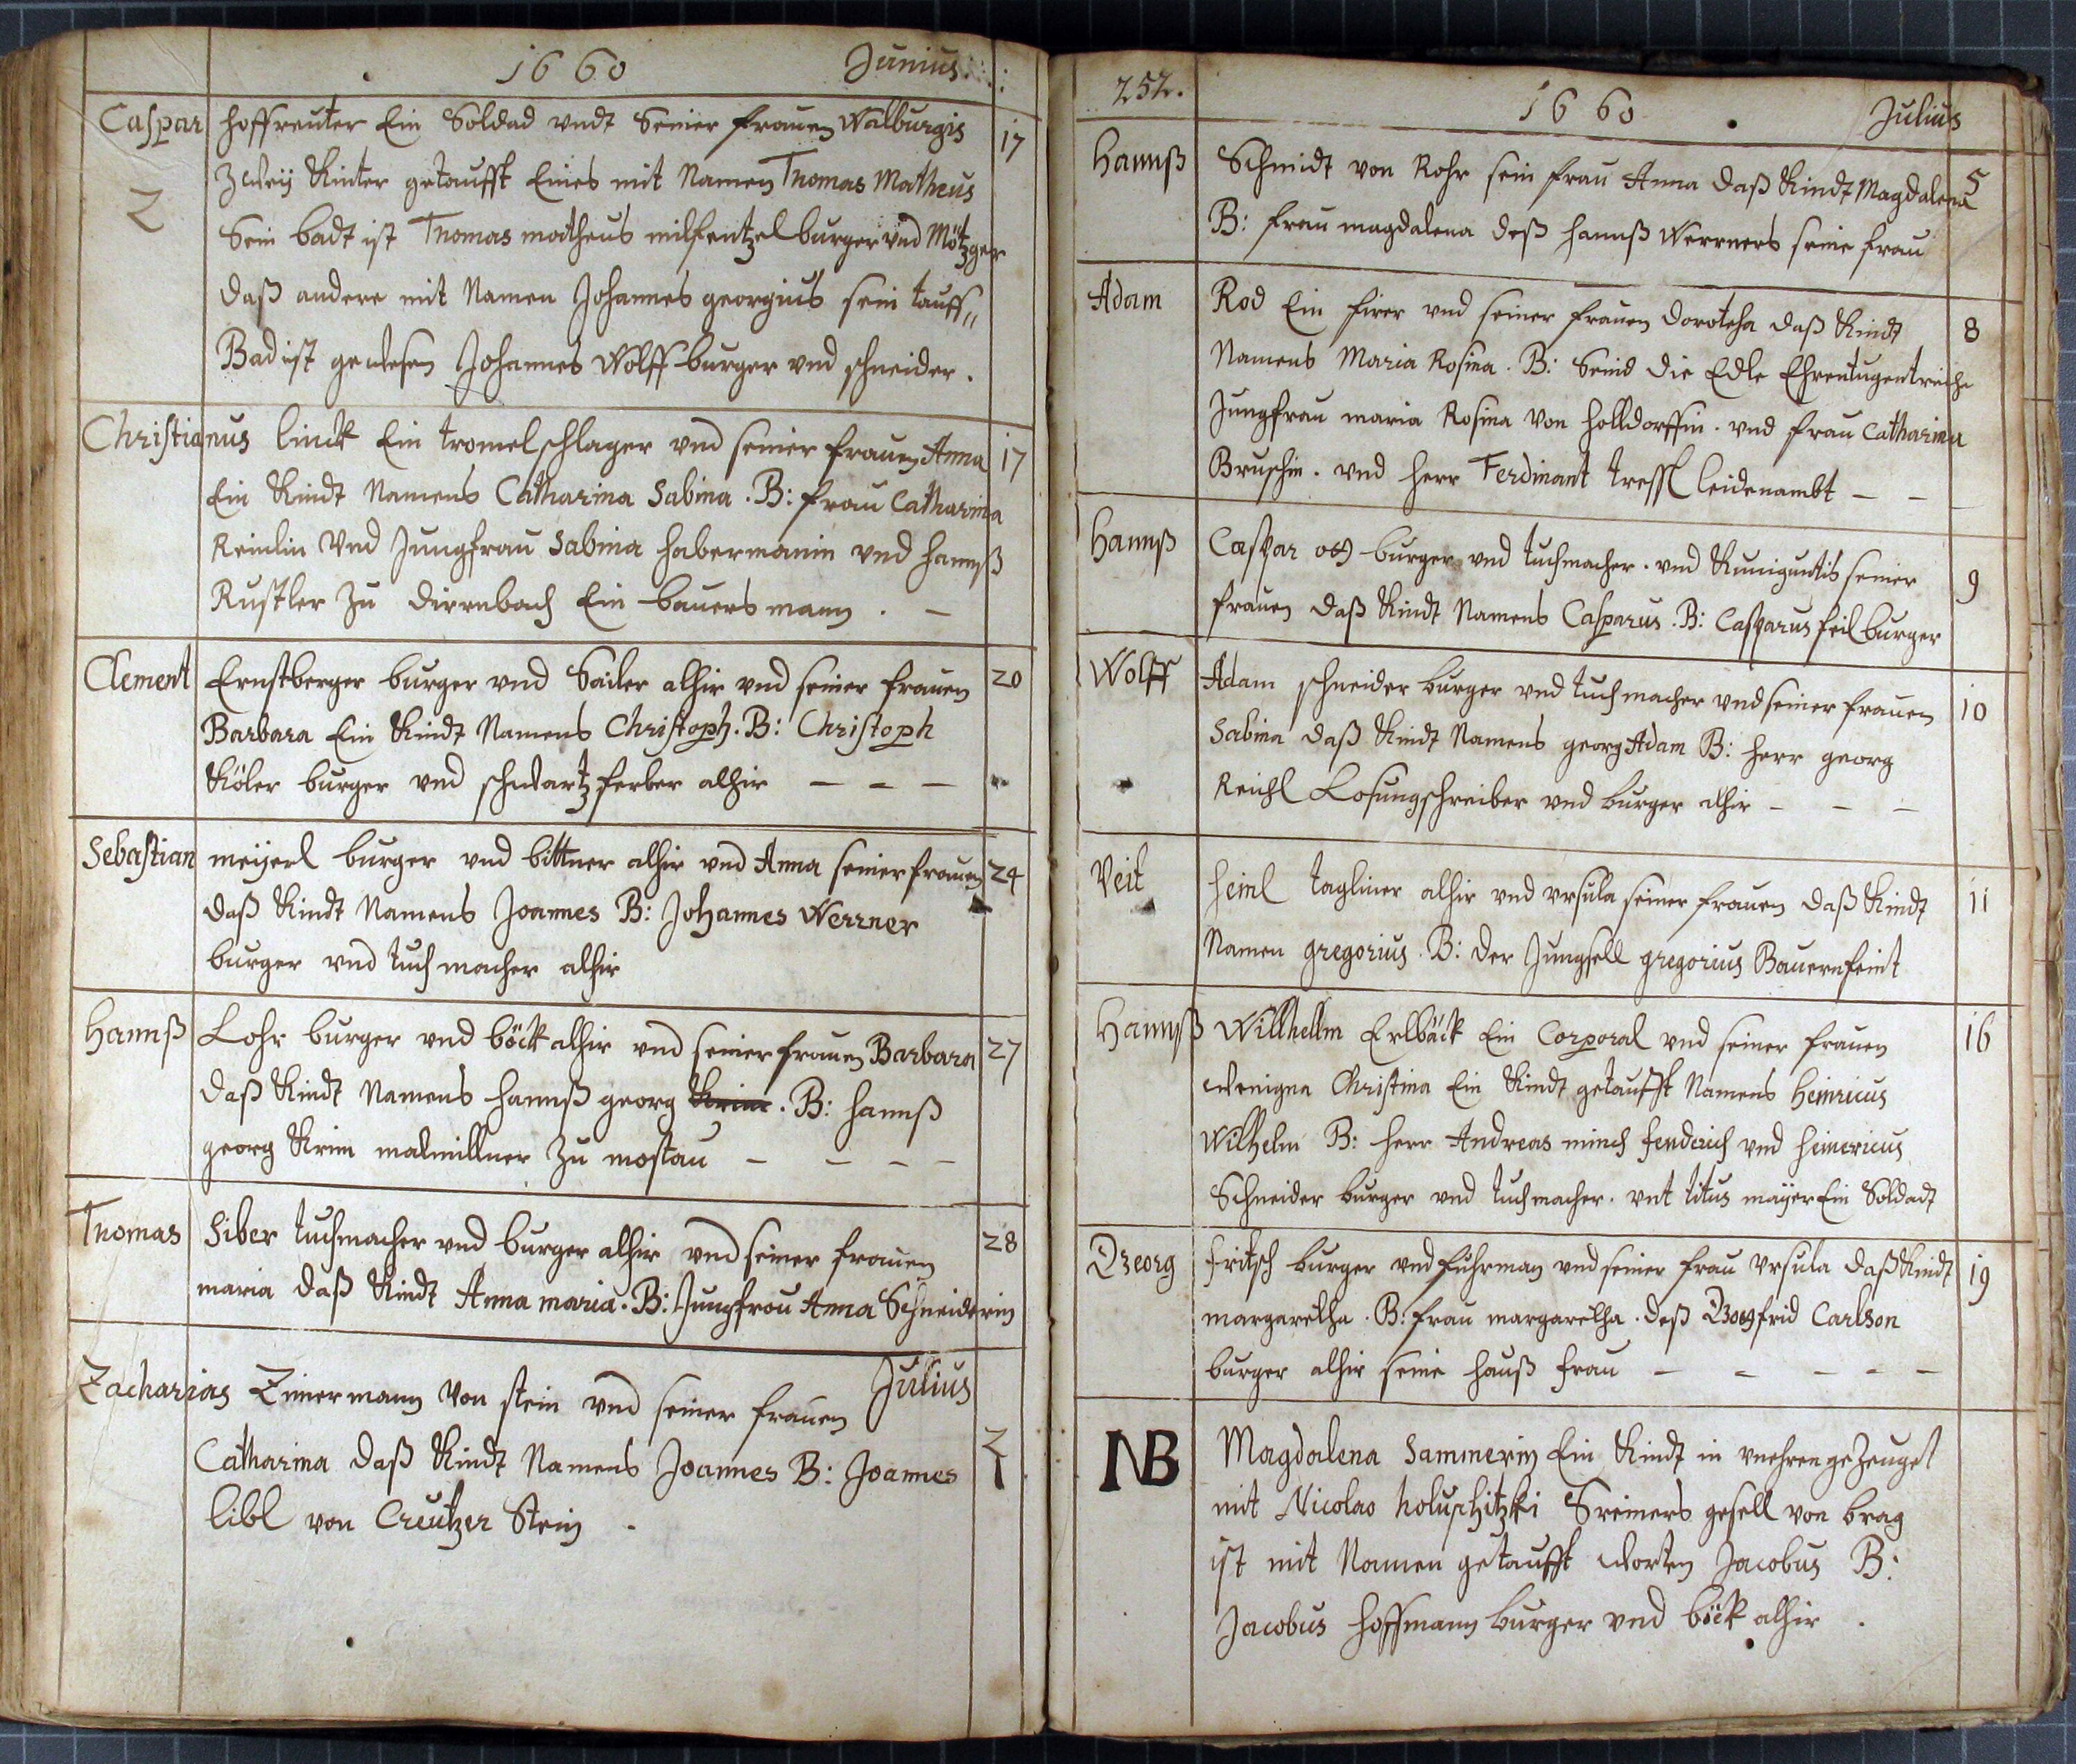 1660 Junius
Caspar hoffreuter Ein Soldad vndt Seiner frauen Walburgis 17
2 Zweÿ Kinter getaufft Eines mit Namen Thomas Matheus
Sein badt ist Thomas matheus milfentzel burger vnd Mötzger
daß andere mit Namen Johannes georgius sein tauff„
Bad ist gewesen Johannes Wolff burger vnd schneider.
Christianus linck Ein tromelschlager vnd seiner frauen Anna 17
Ein Kindt Namens Catharina Sabina. B: frau Catharina
Reinlin Vnd Jungfrau Sabina habermanin vnd hannß
Rustler zu dirrnbach Ein bauersmann. –
Clement Ernstberger burger vnd Sailer alhir vnd seiner frauen 20
Barbara Ein Kindt Namens Christoph. B: Christoph
Köler burger vnd schwartzferber alhir – – –
Sebastian meÿerl burger vnd bittner alhir vnd Anna seiner frauen 24
daß Kindt Namens Joannes B: Johannes Werrner
burger vnd tuchmacher alhir
Hannß Lohr burger vnd böck alhir vnd seiner frauen Barbara 27
daß Kindt Namens hannß georg Krim. B: hannß
georg Krim malmillner zu mostau – – – –
Thomas Siber tuchmacher vnd burger alhir vnd seiner frauen 28
maria daß Kindt Anna maria. B: Jungfrau Anna Schneiderin
Julius
Zacharias Zimermann Von stein vnd seiner frauen
Catharina daß Kindt Namens Joannes B: Joannes
libl von Creutzer Stein
252.
1660 Julius
Hannß Schmidt von Rohr sein frau Anna daß Kindt Magdalena 5
B: frau magdalena deß hannß Werrners seine frau
Adam Rod Ein firer vnd seiner frauen doroteha daß Kindt 8
Namens Maria Rosina. B: Seind die Edle Ehrentugentreiche
Jungfrau maria Rosina von holldorffin. vnd frau Catharina
Bruschin. vnd herr Ferdinant treffl leidenambt – –
Hannß Caspar ott burger vnd tuchmacher. vnd Kuniguntis seiner 9
frauen daß Kindt Namens Casparus. B: Casparus feil burger
Wolff Adam schneider burger vnd tuchmacher vnd seiner frauen 10
Sabina daß Kindt Namens georg Adam B: herr georg
Reichl Losungschreiber vnd burger alhir – – –
Veit heinl tagliner alhir vnd vrsula seiner frauen daß Kindt 11
Namen gregorius. B: der Jungsell gregorius Bauernfeint
Hannß Willhellm Erlbäck Ein Corporal vnd seiner frauen 16
Christina Ein Kindt getaufft Namens Heinricus
Wilhelm B: herr Andreas minch fenderich vnd heinericus
Schneider burger vnd tuchmacher. vnt titus maÿer Ein Soldadt
Georg fritsch burger vnd fuhrman vnd seiner frau Vrsula daß Kindt 19
margaretha. B: frau margaretha. deß Gottfrid Carlson
burger alhir seine hauß frau – – – – –
NB Magdalena Sammerin Ein Kindt in vnehren gezeuget
mit Nicolao holuschitzki Sreiners gesell von brag
ist mit Namen getaufft worten Jacobus B:
Jacobus hoffmann burger vnd böck alhir.